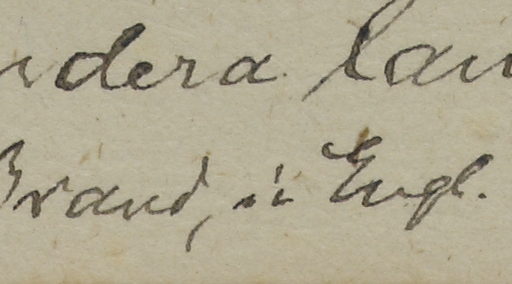 ndera lan
Brand, in Engl.